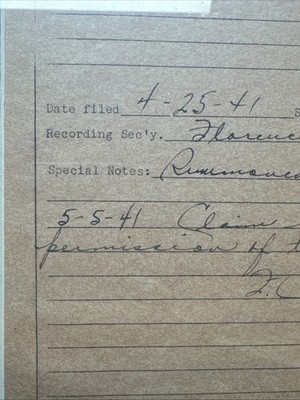 Date filed 4-25-41 S
Recording Sec'y. Florence
Special Notes:
5-5-41 Claim
permission of t